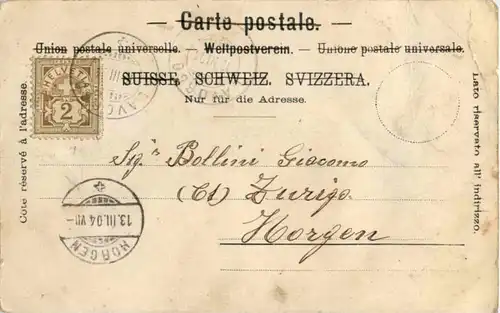 Carte postale.
Union postale universelle. - Weltpostverein. - Unione postale universale.
SUISSE. SCHWEIZ. SVIZZERA.
Nur für die Adresse.
Côté réservé à l'adresse.
Lato riservato all' indirizzo.
HELVETIA
2
Sigr Bollini Giacomo
(Ct) Zurigo
Horgen
13.III.04.VII-
HORGEN